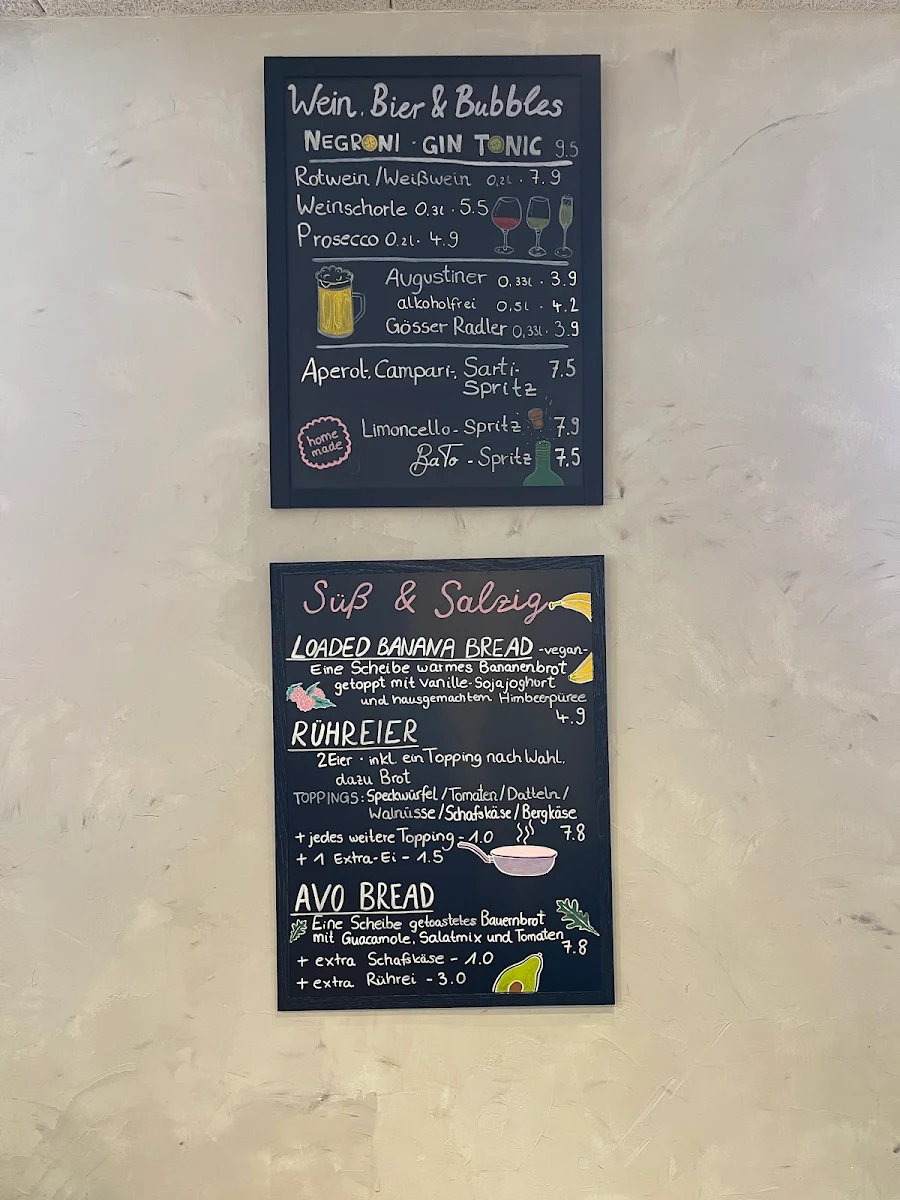 Wein, Bier & Bubbles
NEGRONI · GIN TONIC 9.5
Rotwein/Weißwein 0,2l · 7.9
Weinschorle 0,3l · 5.5
Prosecco 0,2l · 4.9
Augustiner 0,33l · 3.9
alkoholfrei 0,5l · 4.2
Gösser Radler 0,33l · 3.9
Aperol-, Campari-, Sarti- 7.5
Spritz
home
made
Limoncello-Spritz 7.9
BaTo - Spritz 7.5
Süß & Salzig
LOADED BANANA BREAD -vegan-
Eine Scheibe warmes Bananenbrot
getoppt mit Vanille-Sojajoghurt
und hausgemachtem Himbeerpüree
4.9
RÜHREIER
2 Eier · inkl. ein Topping nach Wahl,
dazu Brot
TOPPINGS: Speckwürfel/Tomaten/Datteln/
Walnüsse/Schafskäse/Bergkäse
7.8
+ jedes weitere Topping - 1.0
+ 1 Extra-Ei - 1.5
AVO BREAD
Eine Scheibe getoastetes Bauernbrot
mit Guacamole, Salatmix und Tomaten
7.8
+ extra Schafskäse - 1.0
+ extra Rührei - 3.0